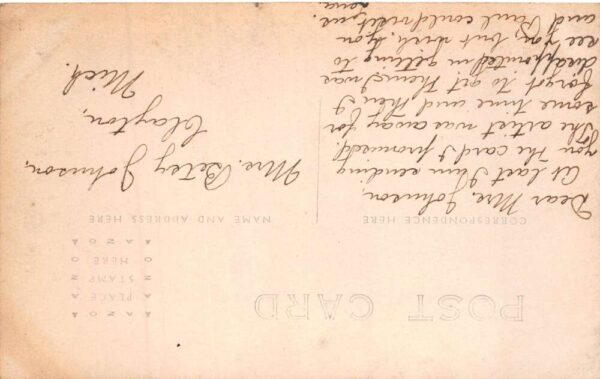 POST CARD
CORRESPONDENCE HERE
NAME AND ADDRESS HERE
AZO
A PLACE A
Z STAMP Z
O HERE O
AZO
Dear Mrs. Johnson,
At last I am sending
you the card I promised.
The artist was away for
some time and then I
forgot to get them. I was
disappointed in getting to
see you, but wish you
and Paul could visit me.
Mrs. Betsy Johnson,
Clayton,
Mich.